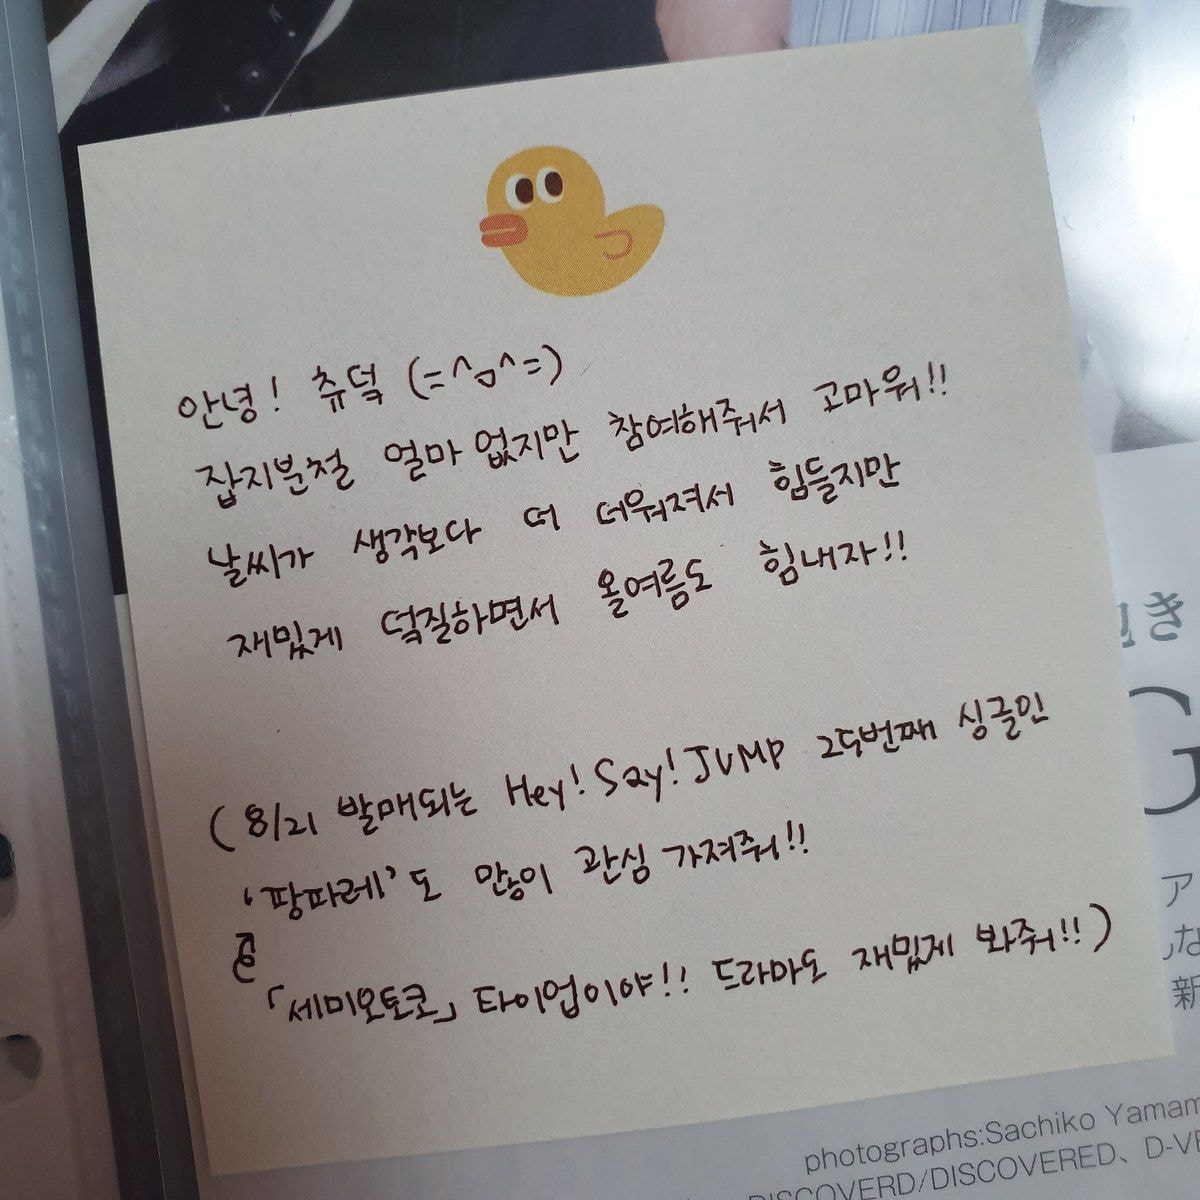 안녕! 츄덕 (=^ㅁ^=)
잡지분철 얼마 없지만 참여해줘서 고마워!!
날씨가 생각보다 더 더워져서 힘들지만
재밌게 덕질하면서 올여름도 힘내자!!
(8/21 발매되는 Hey! Say! JUMP 25번째 싱글인
'팡파레'도 많이 관심 가져줘!!
「세미오토코」 타이업이야!! 드라마도 재밌게 봐줘!!)
き
G
ア
な
新
photographs:Sachiko Yamam
DISCOVERD/DISCOVERED、D-VE